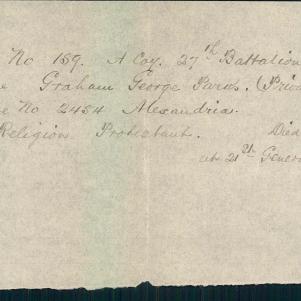 No 159. A Coy. 27th Battalion
Graham George Purvis. (Priva
e No 2454 Alexandria.
Religion Protestant. Died
at 21st Genera